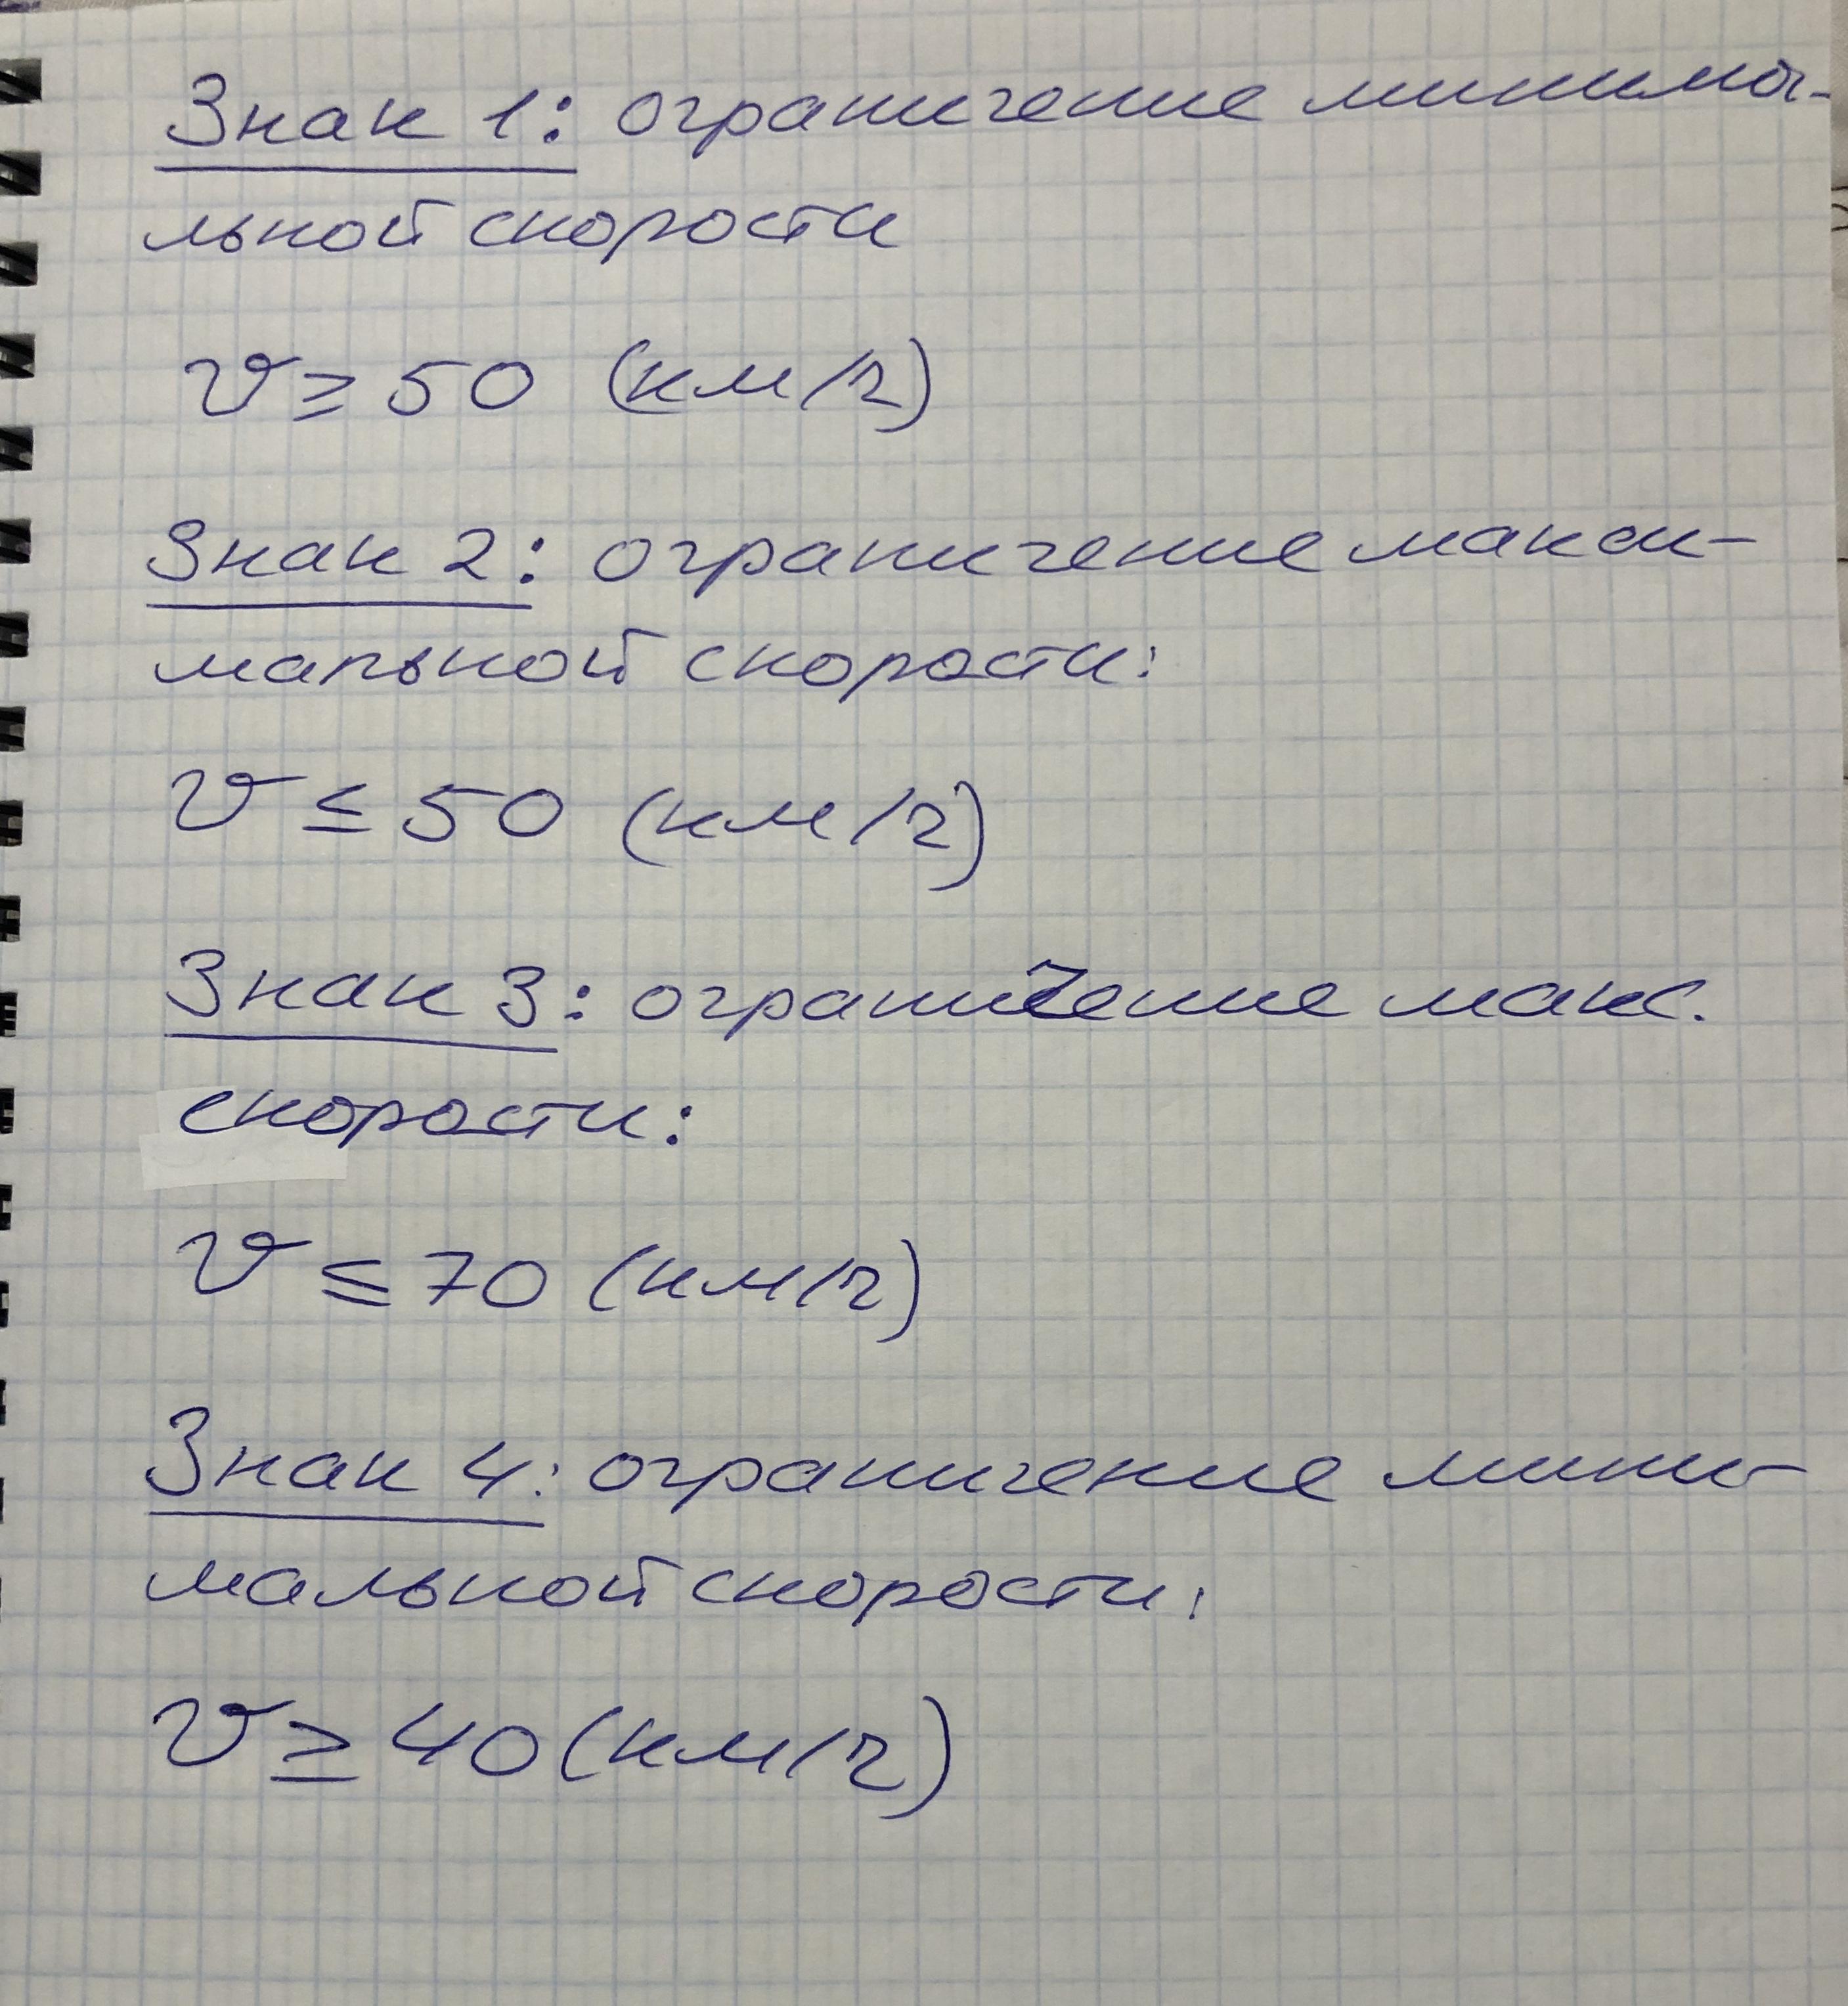 Знак 1: ограничение минима-
льной скорости
v ≥ 50 (км/ч)
Знак 2: ограничение макси-
мальной скорости:
v ≤ 50 (км/ч)
Знак 3: ограничение макс.
скорости:
v ≤ 70 (км/ч)
Знак 4: ограничение мини-
мальной скорости:
v ≥ 40 (км/ч)